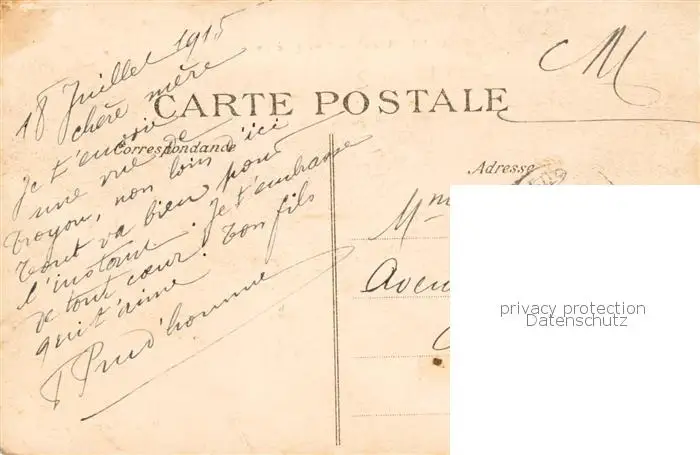 18 Juillet 1915
CM
chère mère
CARTE POSTALE
Je t'envoie
Correspondance
une vue de
Troyon, non loin d'ici
Tout va bien pour
l'instant. Je t'embrasse
de tout cœur. Ton fils
qui t'aime.
Prud'homme
Adresse
Mme
Aven
privacy protection
Datenschutz